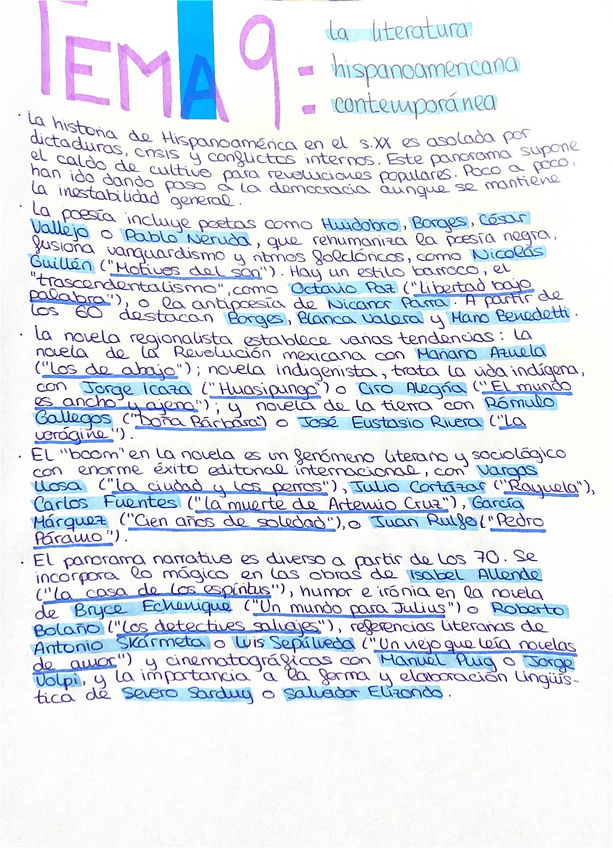 TEMA 9:
la literatura
hispanoamericana
contemporánea
· La historia de Hispanoamérica en el s.XX es asolada por
dictaduras, crisis y conflictos internos. Este panorama supone
el caldo de cultivo para revoluciones populares. Poco a poco,
han ido dando paso a la democracia aunque se mantiene
la inestabilidad general.
· La poesía incluye poetas como Huidobro, Borges, César
Vallejo o Pablo Neruda, que rehumaniza la poesía negra,
fusiona vanguardismo y ritmos folclóricos, como Nicolás
Guillén ("Motivos del son"). Hay un estilo barroco, el
"trascendentalismo", como Octavio Paz ("libertad bajo
palabra"), o la antipoesía de Nicanor Parra. A partir de
los 60 destacan Borges, Blanca Valera y Mario Benedetti.
· La novela regionalista establece varias tendencias: la
novela de la Revolución mexicana con Mariano Azuela
("Los de abajo"); novela indigenista, trata la vida indígena,
con Jorge Icaza ("Huasipungo") o Ciro Alegría ("El mundo
es ancho y ajeno"); y novela de la tierra con Rómulo
Gallegos ("Doña Bárbara") o José Eustasio Rivera ("La
vorágine").
· El "boom" en la novela es un fenómeno literario y sociológico
con enorme éxito editorial internacional, con Vargas
Llosa ("La ciudad y los perros"), Julio Cortázar ("Rayuela"),
Carlos Fuentes ("la muerte de Artemio Cruz"), García
Márquez ("Cien años de soledad"), o Juan Rulfo ("Pedro
Páramo").
· El panorama narrativo es diverso a partir de los 70. Se
incorpora lo mágico en las obras de Isabel Allende
("la casa de los espíritus"), humor e irónia en la novela
de Bryce Echenique ("Un mundo para Julius") o Roberto
Bolaño ("Los detectives salvajes"), referencias literarias de
Antonio Skármeta o Luis Sepúlveda ("Un viejo que leía novelas
de amor") y cinematográficas con Manuel Puig o Jorge
Volpi, y la importancia a la forma y elaboración lingüís-
tica de Severo Sarduy o Salvador Elizondo.